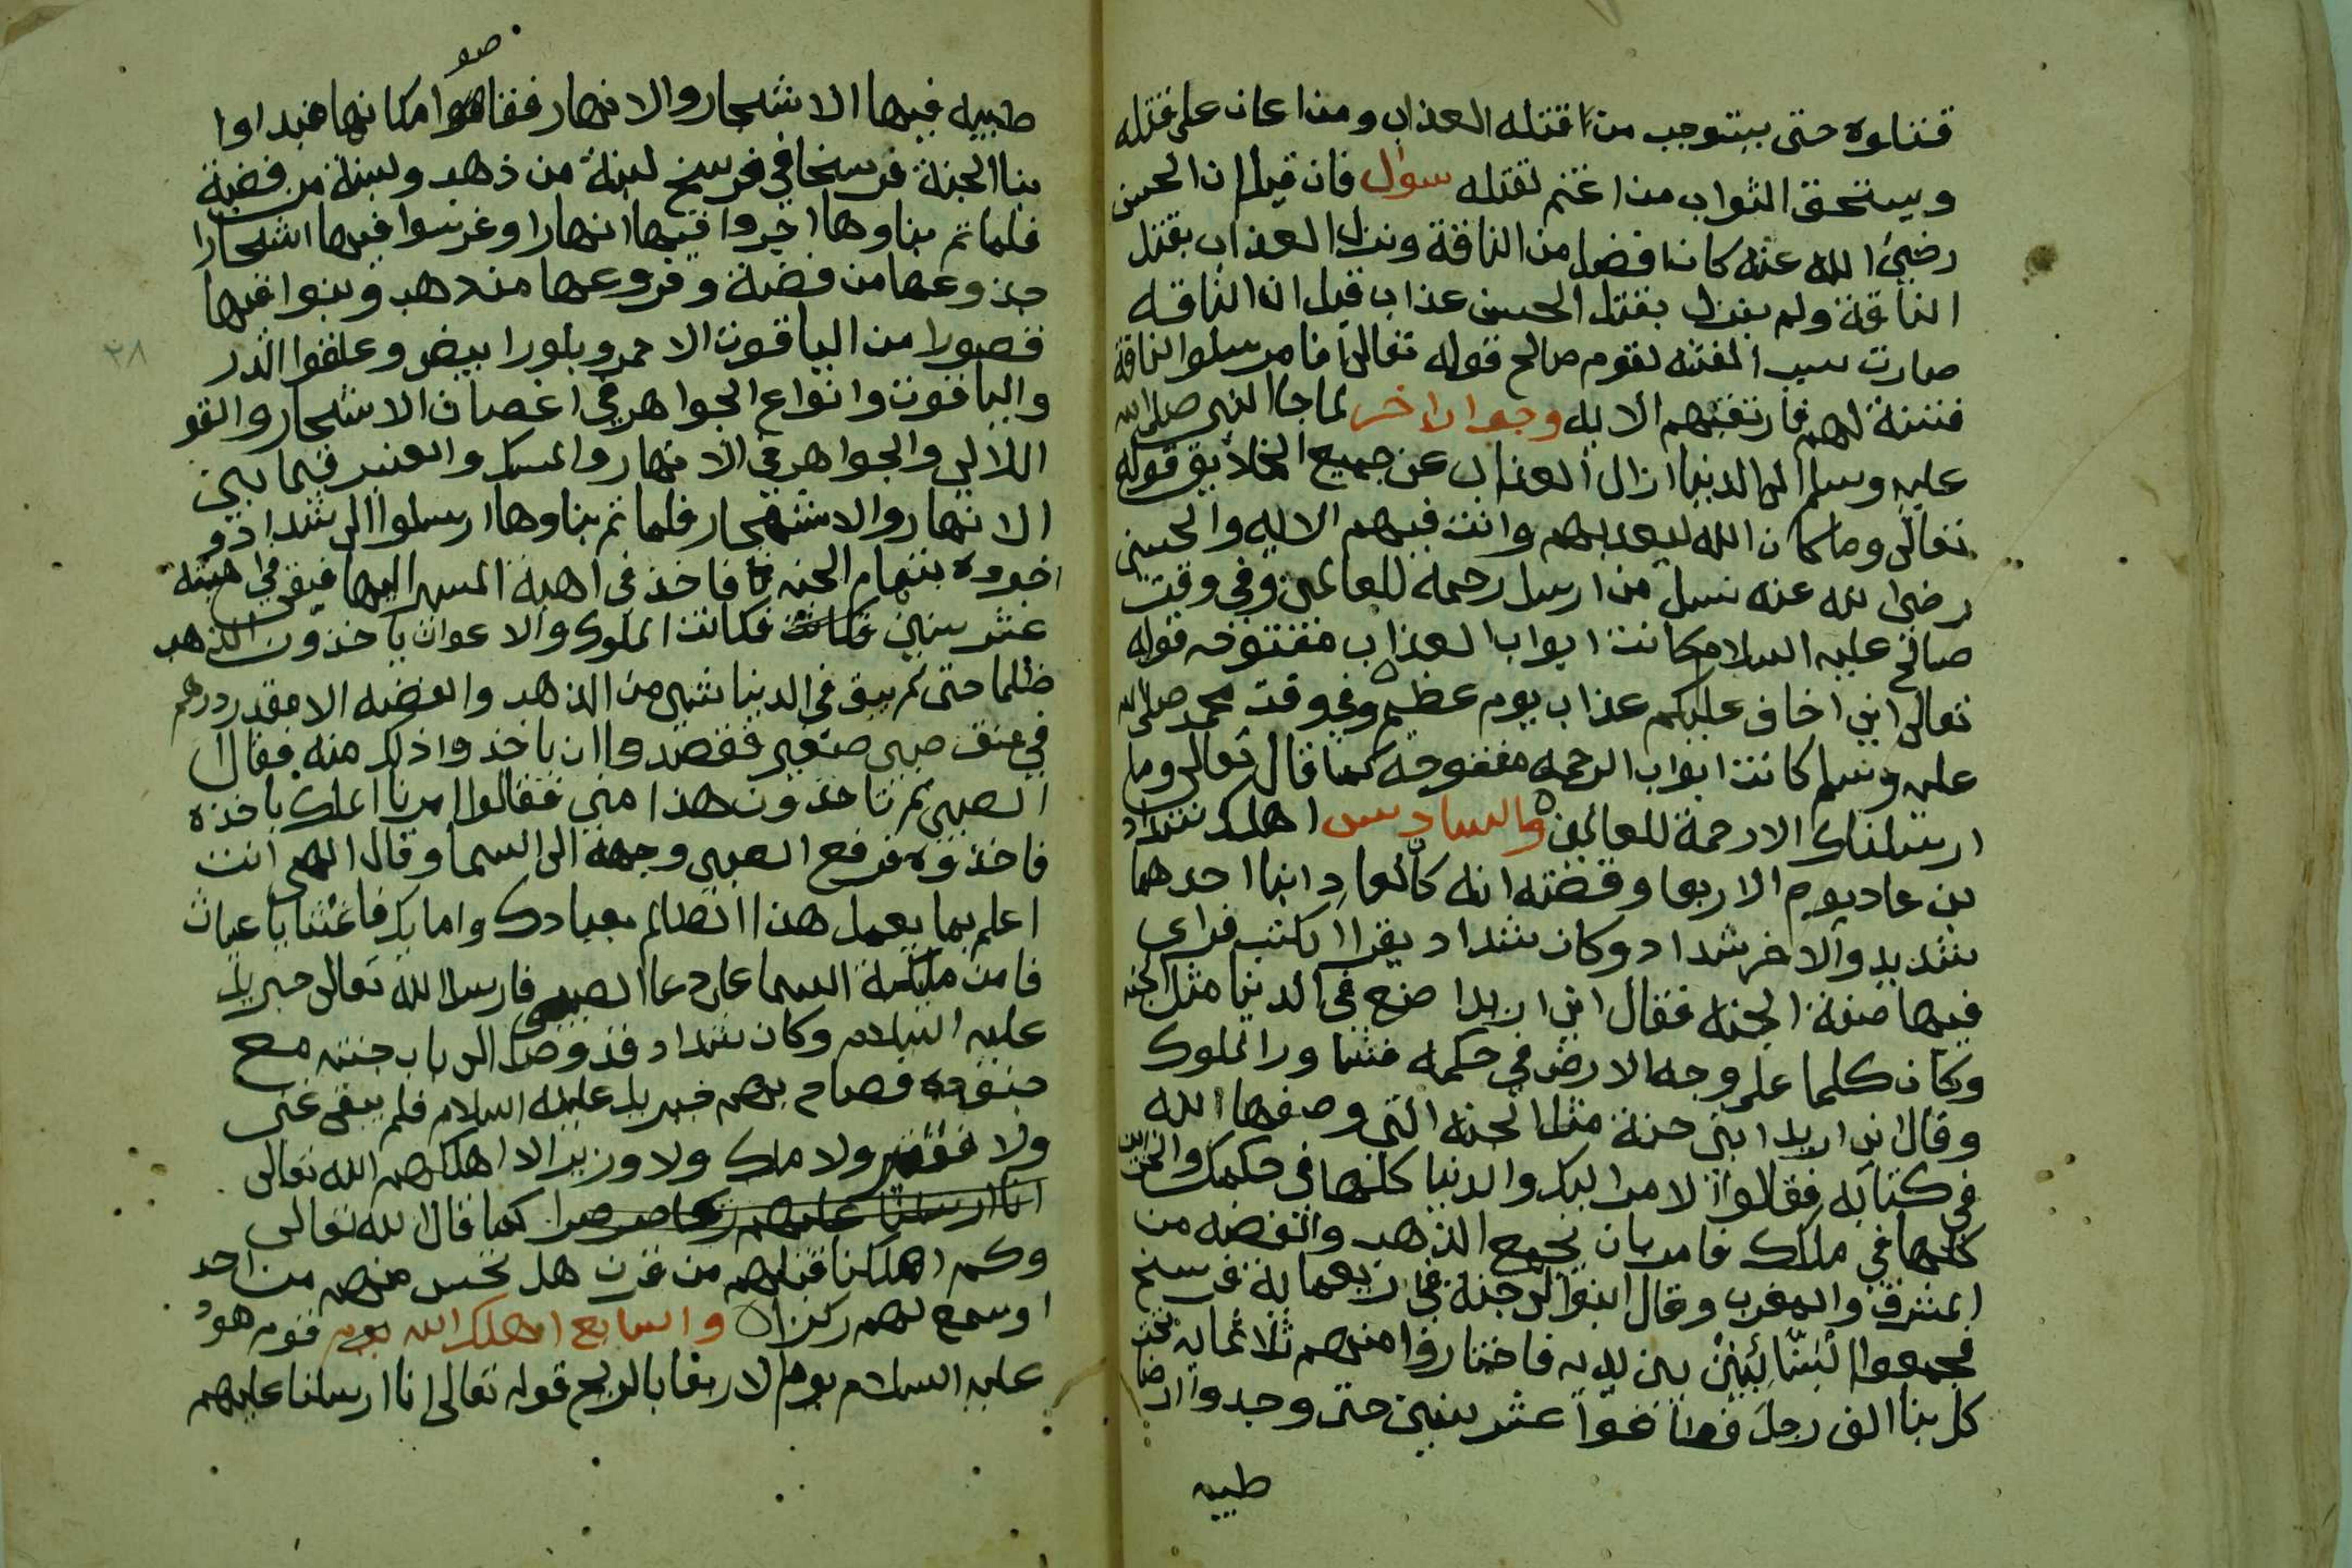 قتلوه حتى يستوجب من قتله العذاب ومن اعان على قتله
ويستحق الثواب من اغتم لقتله سوال فان قيل ان الحسين
رضي الله عنه كان افضل من الناقة ونزل العذاب بقتل
الناقة ولم ينزل بقتل الحسين عذاب قيل ان الناقه
صارت سبب الفتنه لقوم صالح قوله تعالى انا مرسلوا الناقة
فتنة لهم فارتقبهم الايه وجواب اخر لما جا النبي صلى الله
عليه وسلم الى الدنيا ازال العذاب عن جميع الخلايق قوله
تعالى وما كان الله ليعذبهم وانت فيهم الايه والحسين
رضى الله عنه نسل من ارسل رحمة للعالمين وفي وقت
صالح عليه السلام كانت ابواب العذاب مفتوحه قوله
تعالى اني اخاف عليكم عذاب يوم عظيم وفي وقت محمد صلى الله
عليه وسلم كانت ابواب الرحمه مفتوحه كما قال تعالى وما
ارسلناك الا رحمة للعالمين والسادس اهلك شداد
بن عاد يوم الاربعا وقصته انه كان لعاد ابنا احدهما
شديد والاخر شداد وكان شداد يقرا الكتب فراى
فيها صفة الجنه فقال اني اريد اصنع في الدنيا مثل الجنه
وكان كلما على وجه الارض في حكمه فشاور الملوك
وقال اني اريد ابني جنة مثل الجنه التي وصفها الله
في كتابه فقالوا الامر اليك والدنيا كلها في حكمك
كلها في ملكك فامر بان يجمع الذهب والفضه من
المشرق والمغرب وقال ابنوا لي جنة في اربعماية فرسخ
فجمعوا البنائين بين يديه فاختاروا منهم ثلاثمايه تحت
كل بنا الف رجل فطافوا عشر سنين حتى وجدوا ارضا
طيبه
طيبه فيها الاشجار والانهار فقاموا مكانها فبداوا
بنا الجنة فرسخا في فرسخ لبنة من ذهب ولبنة من فضة
فلما تم بناوها اجروا فيها انهارا وغرسوا فيها اشجارا
جذوعها من فضة وفروعها من ذهب وبنوا فيها
قصورا من الياقوت الاحمر وبلور ابيض وعلقوا الدر
والياقوت وانواع الجواهر في اغصان الاشجار والقو
اللالي والجواهر في الانهار والمسك والعنبر فيما بين
الانهار والاشجار فلما تم بناوها ارسلوا الى شداد و
اخبروه بتمام الجنه فاخذ في اهبة المسير اليها فبقى في اهبته
عشر سنين فكانت فكانت الملوك والاعوان ياخذون الذهب
ظلما حتى لم يبق في الدنيا شي من الذهب والفضه الا مقدر درهم
في عنق صبي صغير فقصدوا ان ياخذوا ذلك منه فقال
الصبي لم تاخذون هذا مني فقالوا امرنا الملك ياخذه
فاخذوه فرفع الصبي وجهه الى السما وقال الهي انت
اعلم بما يعمل هذا الظالم بعبادك وامايك فاغثنا يا غياث
فامن مليكة السما على دعا الصبي فارسل الله تعالى جبريل
عليه السلام وكان شداد قد وصل الى باب جنته مع
جنوده فصاح بهم جبريل عليه السلام فلم يبقى غني
ولا فقير ولا ملك ولا وزير الا اهلكهم الله تعالى
انا ارسلنا عليهم ريحا صرصرا كما قال الله تعالى
وكم اهلكنا قبلهم من قرن هل تحس منهم من احد
او تسمع لهم ركزا والسابع اهلك الله قوم هود
عليه السلام يوم الاربعا بالريح قوله تعالى انا ارسلنا عليهم
٢٨